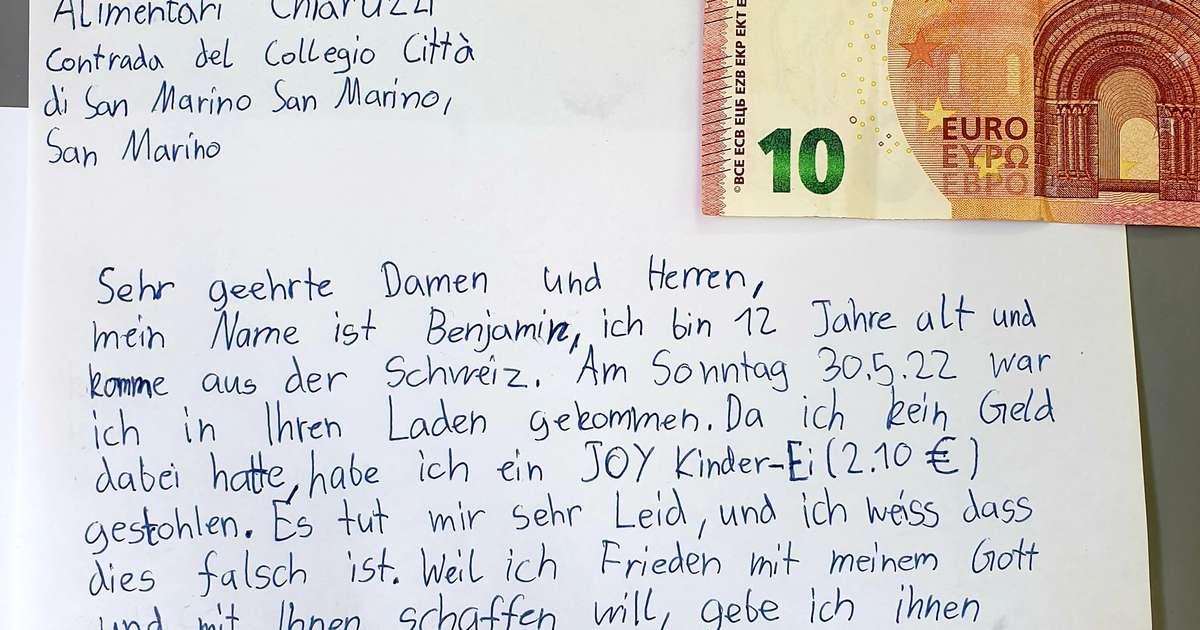 Alimentari Chiaruzzi
Contrada del Collegio Città
di San Marino San Marino,
San Marino
©BCE ECB ЕЦБ EZB EKP EKT
10
EURO
ΕΥΡΩ
ЕВРО
Sehr geehrte Damen und Herren,
mein Name ist Benjamin, ich bin 12 Jahre alt und
komme aus der Schweiz. Am Sonntag 30.5.22 war
ich in Ihren Laden gekommen. Da ich kein Geld
dabei hatte, habe ich ein JOY Kinder-Ei (2.10 €)
gestohlen. Es tut mir sehr Leid, und ich weiss dass
dies falsch ist. Weil ich Frieden mit meinem Gott
und mit Ihnen schaffen will, gebe ich ihnen